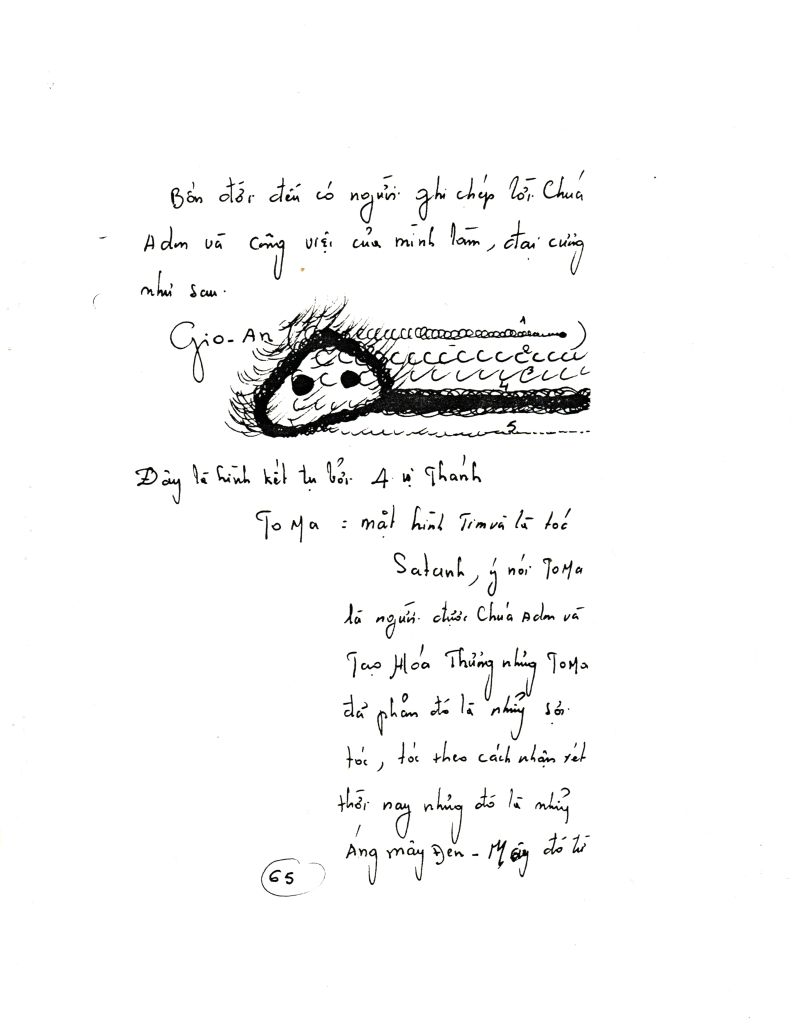 Bốn đời đều có người ghi chép lời Chúa
Adm và công việc của mình làm, đại cương
như sau.
Gio-An
1
2
3
4
5
Đây là hình kết tụ bởi 4 vị Thánh
ToMa = mặt hình Tim và là tóc
Satanh, ý nói ToMa
là người được Chúa Adm và
Tạo Hóa Thương nhưng ToMa
đã phản đó là những sợi
tóc, tóc theo cách nhận xét
thời nay nhưng đó là những
Áng mây Đen - Mây đó từ
65